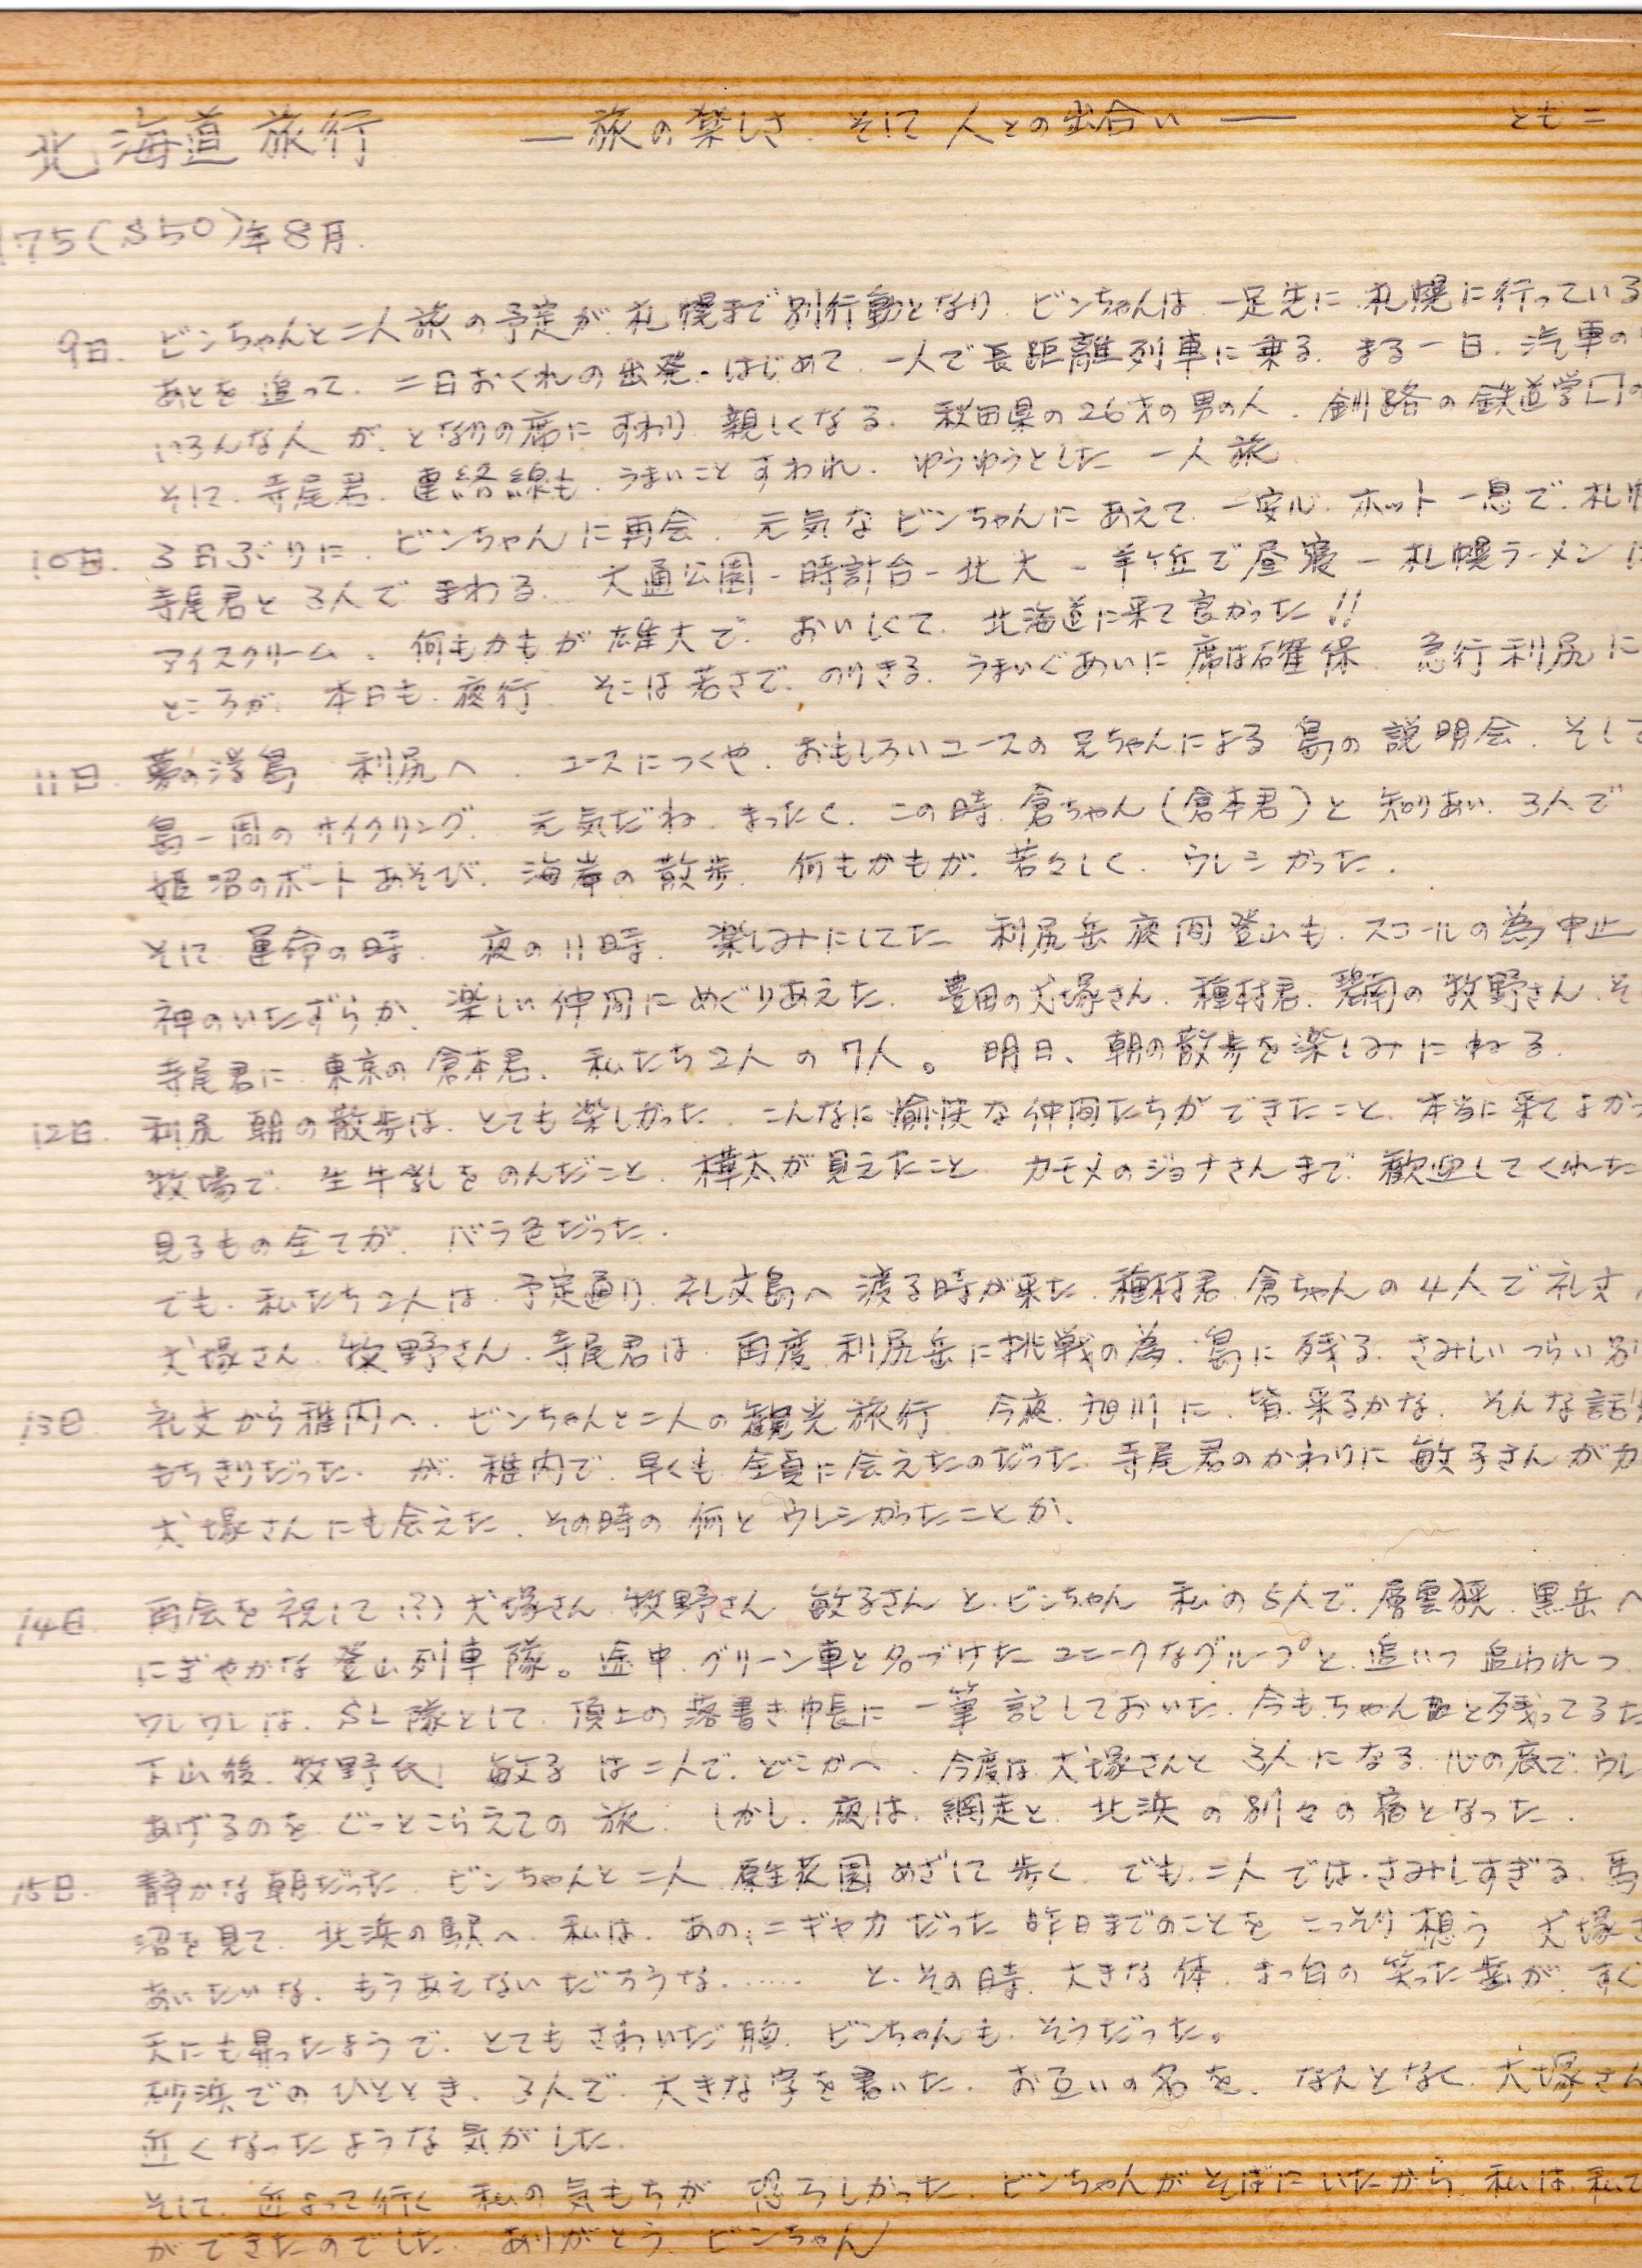 北海道旅行 ―旅の楽しさ そして 人との出合い― ともこ
175(S50)年8月.
9日. ビンちゃんと二人旅の予定が 札幌まで別行動となり ビンちゃんは 一足先に 札幌に行っている
あとを追って. 二日おくれの出発. はじめて 一人で長距離列車に乗る. まる一日. 汽車の
いろんな人が となりの席にすわり 親しくなる. 秋田県の26才の男の人. 釧路の鉄道学
そして 寺尾君. 連絡線も うまいことすわれ. ゆうゆうとした 一人旅
10日. 3日ぶりに. ビンちゃんに再会. 元気なビンちゃんにあえて 一安心. ホット一息で. 札幌
寺尾君と 3人でまわる. 大通公園-時計台-北大-羊ヶ丘で昼寝-札幌ラーメンに
アイスクリーム. 何もかもが雄大で. おいしくて. 北海道に来て良かった!!
ところが. 本日も 夜行. そこは若さで. のりきる. うまいぐあいに 席は確保 急行利尻に
11日. 夢の浮島 利尻へ. ユースにつくや. おもしろいユースの兄ちゃんによる 島の説明会. そして
島一周のサイクリング. 元気だね まったく. この時 倉ちゃん(倉本君)と知りあい. 3人で
姫沼のボートあそび. 海岸の散歩. 何もかもが. 若々しく. ウレシかった.
そして 運命の時. 夜の11時. 楽しみにしてた 利尻岳夜間登山も. スコールの為中止
神のいたずらか. 楽しい仲間にめぐりあえた. 豊田の犬塚さん. 種村君. 碧南の牧野さん. そ
寺尾君に 東京の倉本君. 私たち2人の7人。 明日、朝の散歩を楽しみにねる.
12日. 利尻 朝の散歩は. とても楽しかった. こんなに愉快な仲間たちができたこと. 本当に来てよかっ
牧場で. 生牛乳をのんだこと. 樺太が見えたこと カモメのジョナさんまで. 歓迎してくれた
見るもの全てが. バラ色だった.
でも. 私たち2人は 予定通り 礼文島へ 渡る時が来た. 種村君 倉ちゃんの4人で礼文
犬塚さん 牧野さん. 寺尾君は 再度 利尻岳に挑戦の為. 島に残る. さみしい つらい別
13日. 礼文から稚内へ. ビンちゃんと二人の観光旅行. 今夜. 旭川に. 皆 来るかな. そんな話
もちきりだった. が. 稚内で 早くも 全員に会えたのだった. 寺尾君のかわりに 敏子さんが
犬塚さんにも会えた. その時の 何と ウレシかったことか.
14日. 再会を祝して(?) 犬塚さん 牧野さん 敏子さん と. ビンちゃん 私の5人で. 層雲狭 黒岳へ
にぎやかな登山列車隊。途中 グリーン車と名づけた ユニークなグループと. 追いつ追われつ.
ワレワレは. SL隊として. 頂上の落書き帳に 一筆記しておいた. 今も. ちゃんと残ってる
下山後. 牧野氏 敏子 は二人で. どこかへ. 今度は 犬塚さんと 3人になる. 心の底で. ウレ
あげるのを. ぐーとこらえての 旅. しかし. 夜は. 網走と 北浜の別々の宿となった.
15日. 静かな朝だった. ビンちゃんと二人 原生花園めざして歩く. でも. 二人では. さみしすぎる. 馬
沼を見て. 北浜の駅へ. 私は. あの. ニギヤカだった昨日までのことを こっそり想う 犬塚さ
あいたいな. もうあえないだろうな. …… と. その時. 大きな体. まっ白の笑った歯が. すぐ
天にも昇ったようで. とてもさわいだ胸. ビンちゃんも. そうだった。
砂浜でのひととき. 3人で. 大きな字を書いた. お互いの名を. なんとなく. 犬塚さん
近くなったような気がした.
そして. 近よって行く 私の気もちが 恐ろしかった. ビンちゃんがそばにいたから. 私は. 私で
ができたのでした. ありがとう. ビンちゃん